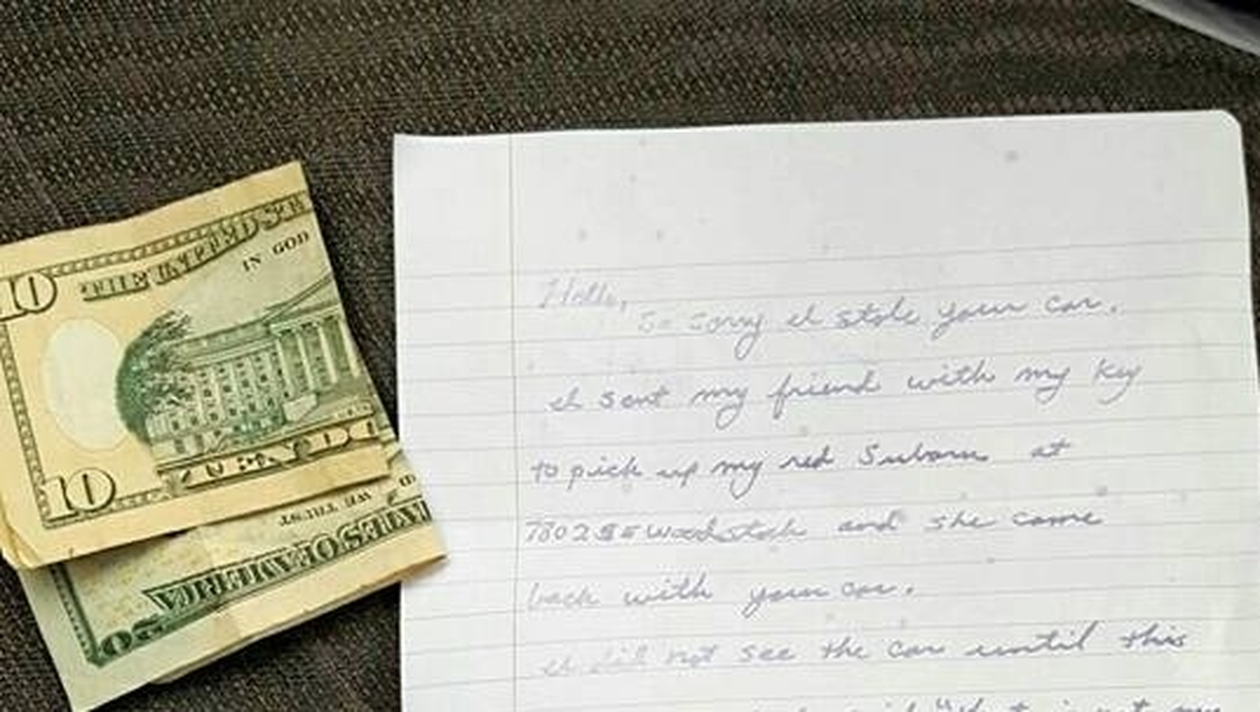 10
THE UNITED STATE
IN GOD
10
WE TRUST
TES OF AMERICA
Hello,
So Sorry I stole your car.
I sent my friend with my key
to pick up my red Subaru at
7802 SE Woodstock and she came
back with your car.
I did not see the car until this
said "that is not my